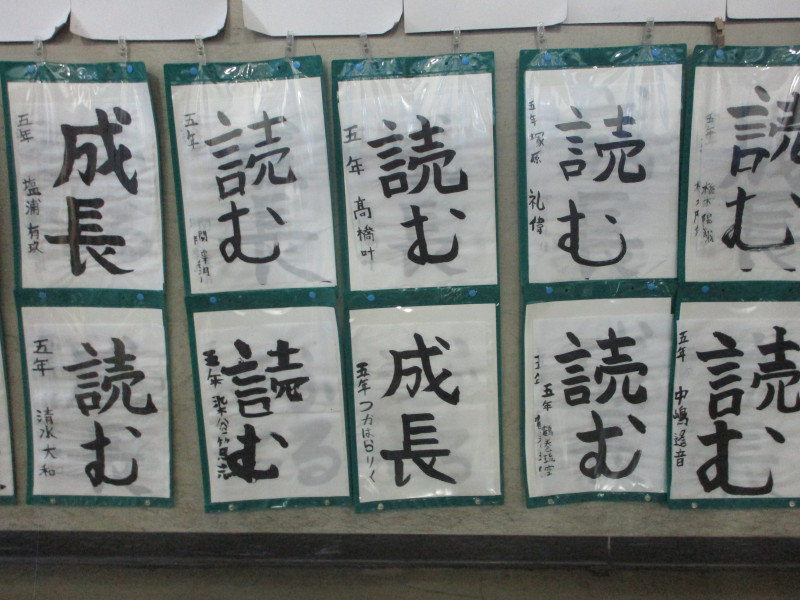 成長
五年 塩浦
読む
五年
読む
五年 高橋叶
読む
五年 塚原 礼偉
読む
五年
読む
五年 清水大和
読む
五年
成長
五年 つかはらりく
読む
五年
読む
五年 中嶋遥音